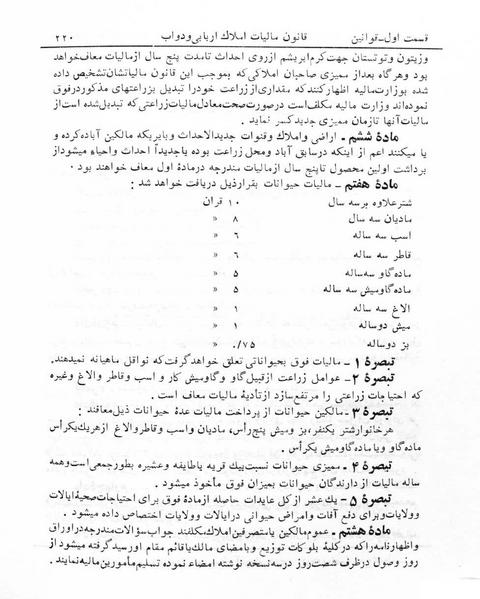 قسمت اول-قوانین قانون مالیات املاك اربابی‌ودواب ۲۲۰
وزیتون وتوتستان جهت‌کرم‌ابریشم ازروی احداث تامدت پنج سال ازمالیات معاف‌خواهد
بود وهرگاه بعداز ممیزی صاحبان املاکی‌که بموجب این قانون مالیاتشان‌تشخیص داده
شده بوزارت‌مالیه اظهارکنندکه مقداری‌اززراعت خودرا تبدیل بزراعتهای مذکوردرفوق
نموده‌اند وزارت مالیه مکلف‌است درصورت‌صحت‌معادل‌مالیات‌زراعتی‌که تبدیل‌شده‌است‌از
مالیات‌آنها تازمان ممیزی جدیدکسر نماید .
مادۀ ششم - اراضی واملاك وقنوات جدیدالاحداث وبایربکه مالکین آباد‌کرده و
یا میکنند اعم از اینکه درسابق آباد ومحل‌زراعت بوده یاجدیداً احداث واحیاء میشوداز
برداشت اولین محصول تاپنج سال ازمالیات مندرجه درمادۀ اول معاف خواهند بود .
مادۀ هفتم - مالیات حیوانات بقرارذیل دریافت خواهد شد :
شترعلاوه برسه سال ۱۰ قران
مادیان سه سال ۸ «
اسب سه ساله ۶ «
قاطر سه ساله ۶ «
ماده‌گاو سه‌ساله ۵ «
ماده‌گاومیش سه ساله ۵ «
الاغ سه ساله ۱ «
میش دوساله ۱ «
بز دوساله ۰/۷۵ «
تبصرۀ ۱ - مالیات فوق بحیواناتی تعلق خواهدگرفت‌که نواقل ماهیانه نمیدهند.
تبصرۀ ۲- عوامل زراعت ازقبیل‌گاو وگاومیش کار و اسب وقاطر والاغ وغیره
که احتیاجات زراعتی را مرتفع‌سازد ازتأدیۀ مالیات معاف است .
تبصرۀ ۳- مالکین حیوانات از پرداخت مالیات عدۀ حیوانات ذیل‌معافند :
هرخانوارشتر یکنفر، بز ومیش پنج‌رأس، مادیان واسب وقاطروالاغ ازهریك‌یکرأس
ماده گاو ویا ماده‌گاومیش یکرأس.
تبصرۀ ۴ - ممیزی حیوانات نسبت‌بیك قریه یاطایفه وعشیره بطورجمعی‌است‌وهمه
ساله مالیات از دارندگان حیوانات بمیزان فوق مأخوذ میشود .
تبصرۀ ۵ - یك‌عشر ازکل عایدات حاصله ازمادۀ فوق برای احتیاجات صحیۀ ایالات
وولایات‌وبرای دفع آفات وامراض حیوانی درایالات وولایات اختصاص داده میشود .
مادۀ هشتم - عموم مالکین یامتصرفین املاك مکلفند جواب سؤالات مندرجه دراوراق
واظهارنامه‌راکه درکلیۀ بلوکات توزیع وبامضای مالك‌یاقائم مقام اورسیدگرفته میشود از
روز وصول درظرف شصت‌روز درسه‌نسخه نوشته امضاء نموده تسلیم مأمورین مالیه‌نمایند .